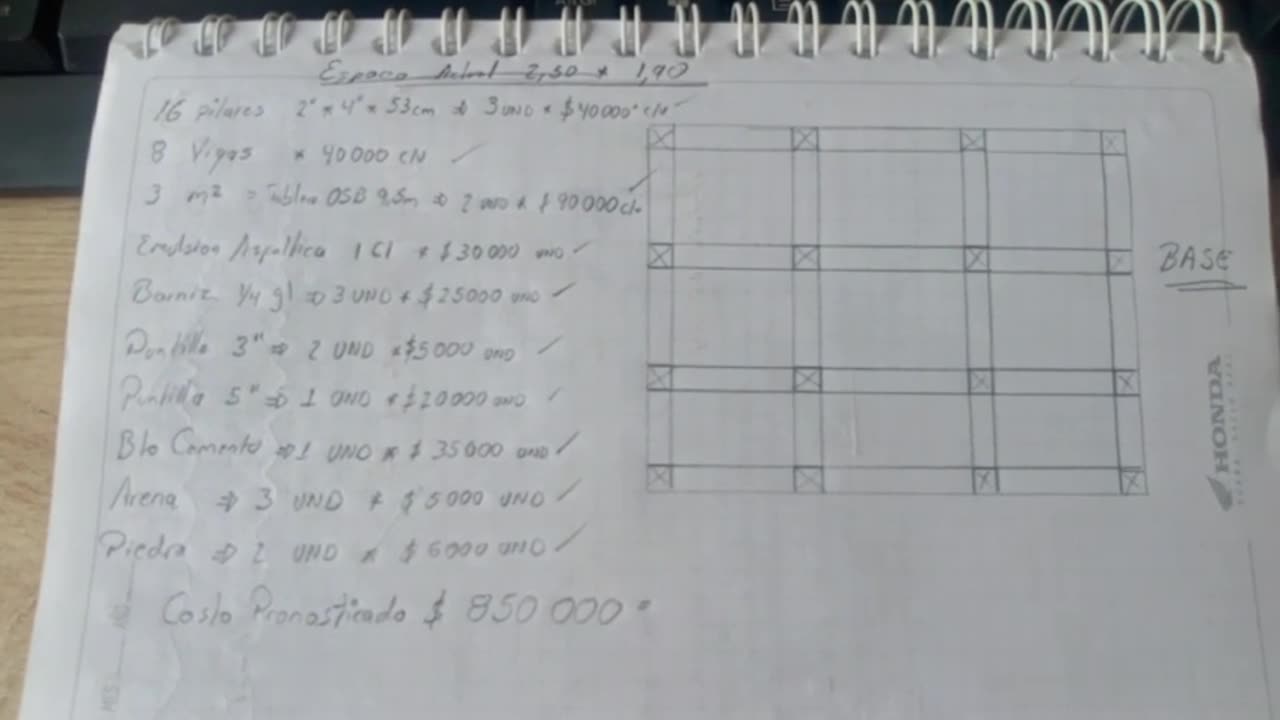 Espacio Actual 2,50 * 1,90
16 pilares 2" * 4" * 53cm ⇒ 3 UND * $40000 c/u
8 Vigas * 40000 c/u ✓
3 m² = Tablero OSB 9,5m ⇒ 2 UND * $90000 c/u
Emulsion Aspaltica 1 Cl * $30000 UND ✓
Barniz 1/4 gl ⇒ 3 UND * $25000 UND ✓
Puntilla 3" ⇒ 2 UND * $5000 UND ✓
Puntilla 5" ⇒ 1 UND * $20000 UND ✓
Blto Cemento ⇒ 1 UND * $35000 UND ✓
Arena ⇒ 3 UND * $5000 UND ✓
Piedra ⇒ 2 UND * $6000 UND ✓
Costo Pronosticado $850000
BASE
HONDA
MES